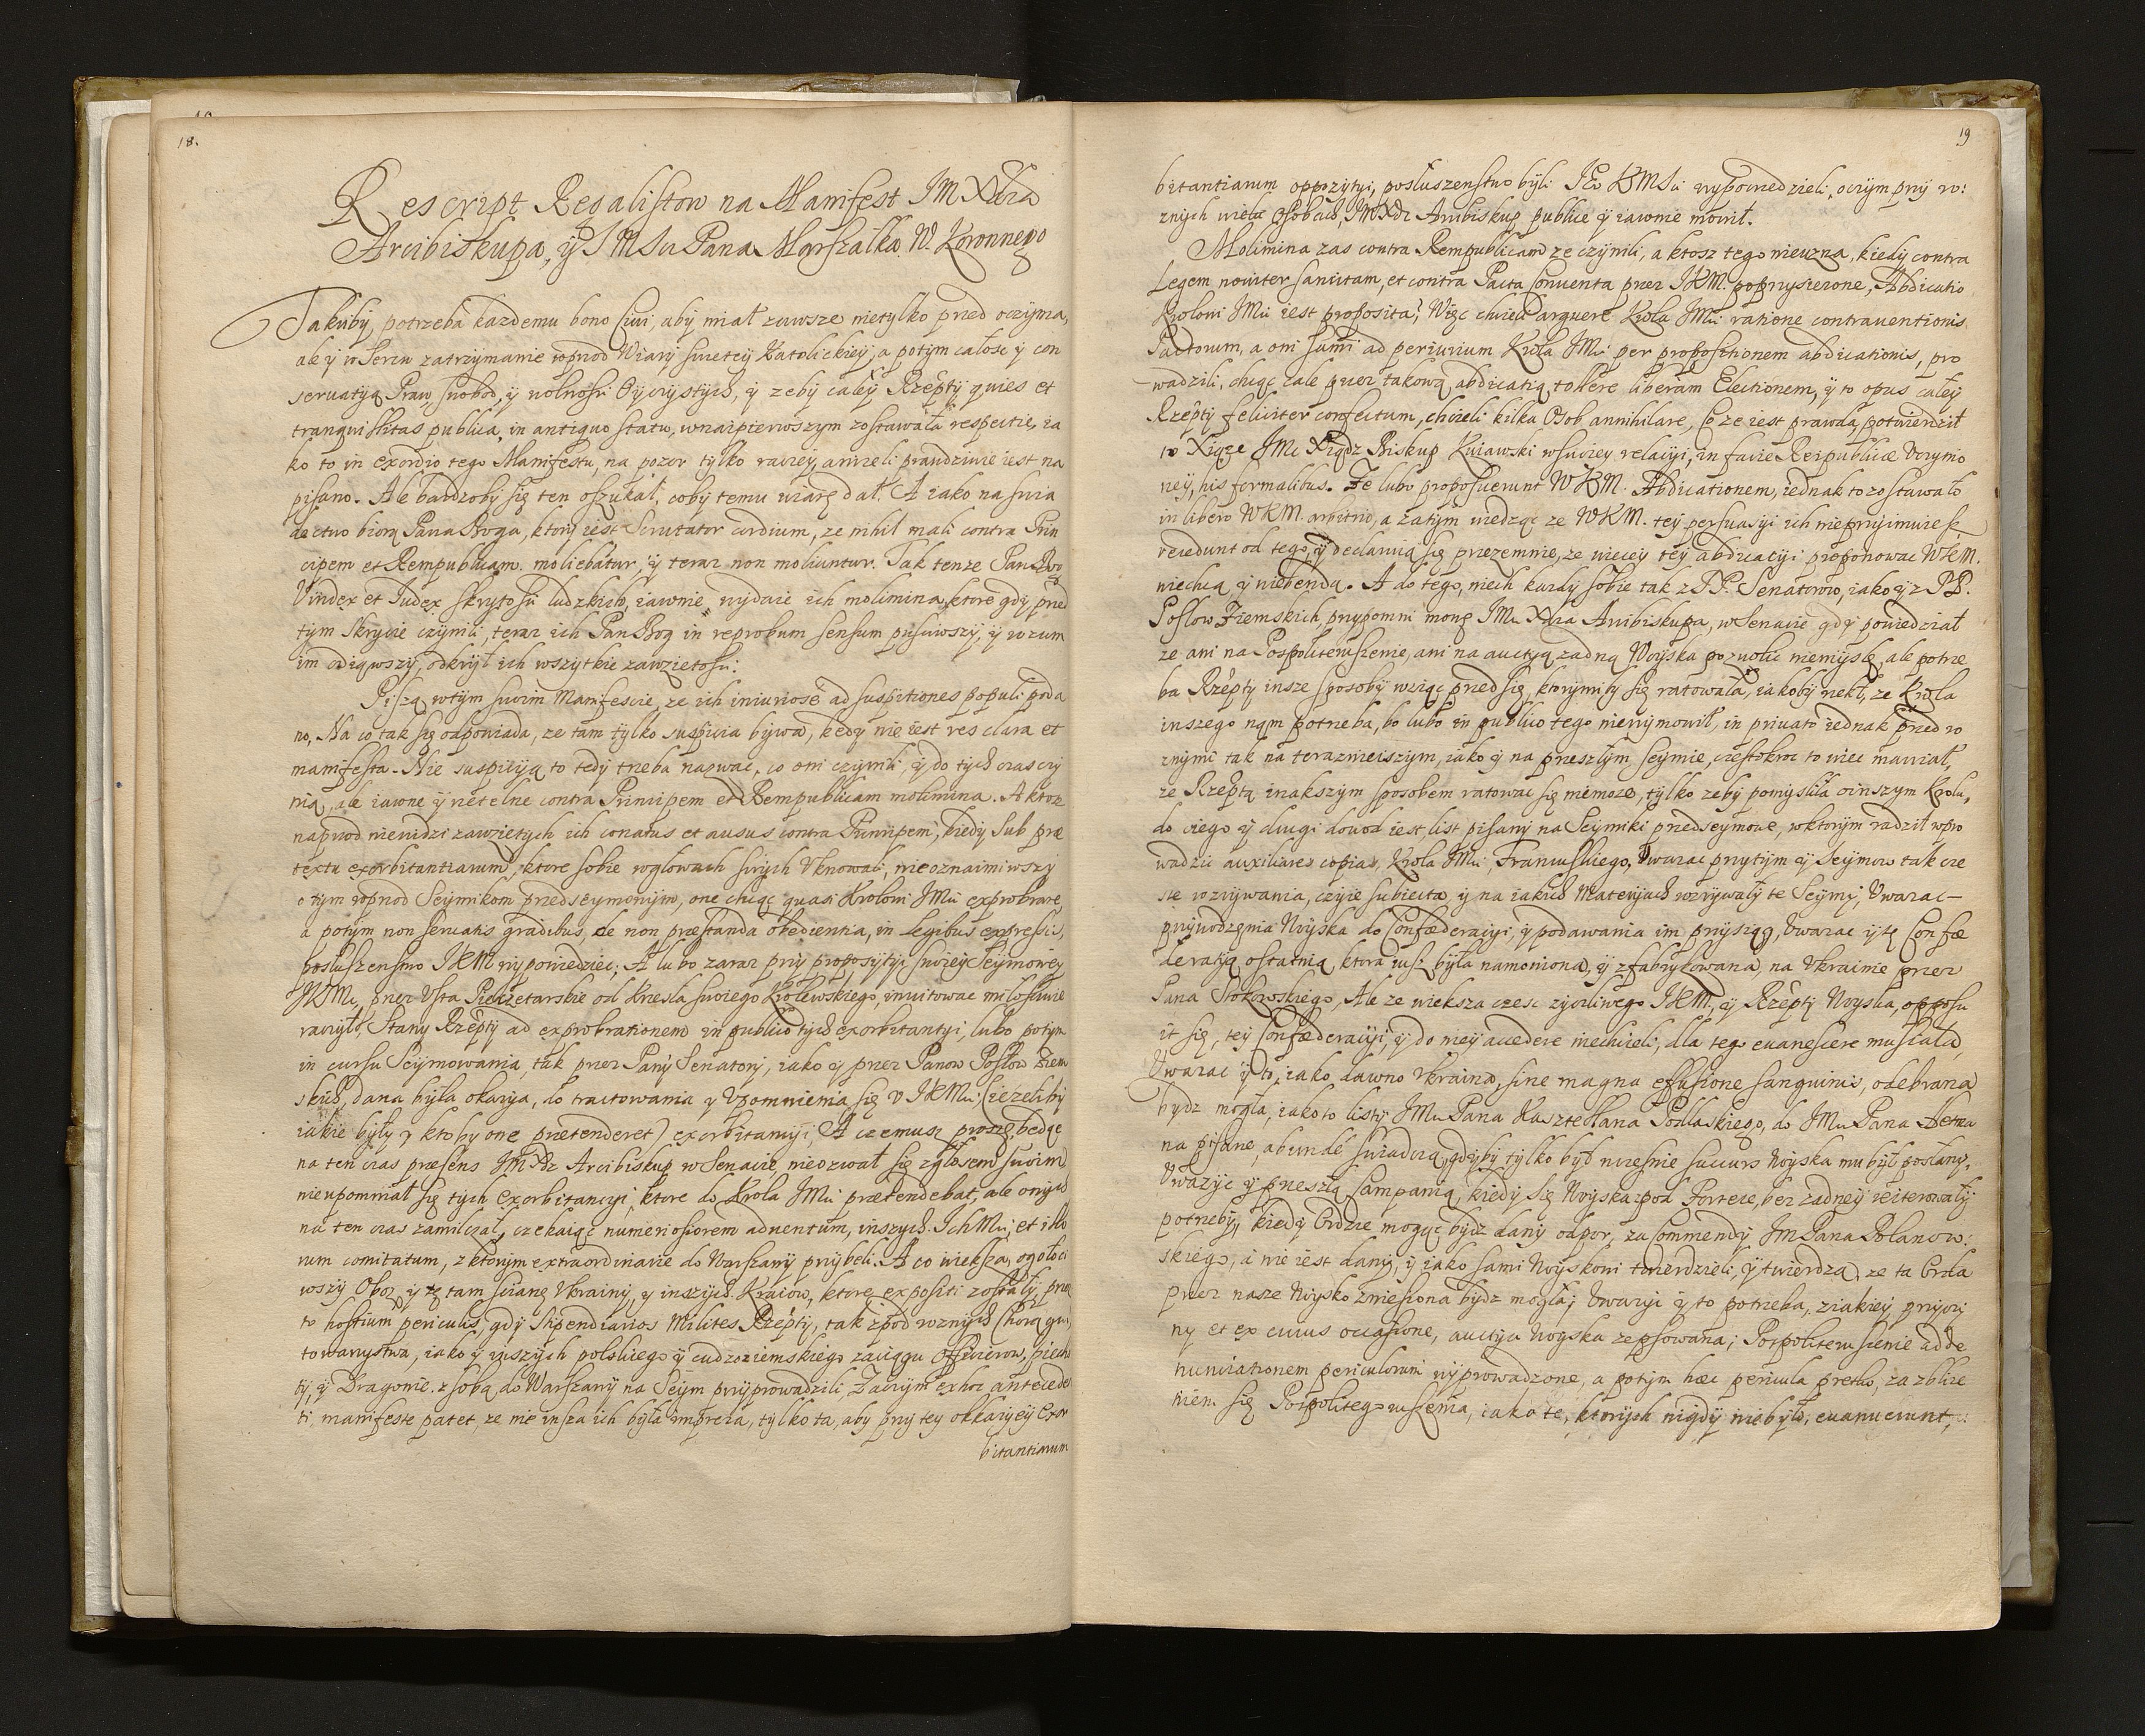 18.
Rescript Regalistow na Manifest JM Xdza
Arcibiskupa, ÿ JMSci Pana Marszałka W. Koronnego
Takuby, potrzeba kazdemu bono Civi, aby miał zawsze nietylko przed oczyma,
ale ÿ w Sercu zatrzymanie wprzod Wiary swietey Katolickiey, a potym całosc y con
servatyą Praw, swobod, ÿ wolnosci Oyczystych, ÿ zeby całey Rzepty quies et
tranquillitas publica, in antiquo statu, wnaipierwszym zostawała respectie, ia
ko to in exordio tego Manifestu, na pozor tylko raczey, anizeli prawdziwie iest na
pisano. Ale bardzoby się ten oszukał, coby temu wiarę dał. A iako na swia
dectwo biorą Pana Boga, ktory iest Scrutator cordium, ze nihil mali contra Prin
cipem et Rempublicam moliebatur, ÿ teraz non moliuntur. Tak tenze Pan Bog
Vindex et Judex skrytosci ludzkich, iawnie wydaie ich molimina, ktore gdy przed
tym skrycie czynili, teraz ich Pan Bog in reprobum sensum pusciwszy, ÿ rozum
im odiąwszy, odkrył ich wszytkie zawzietosci:
Piszą wtym swoim Manifescie, ze ich iniuriose ad suspitiones populi poda
no, Na co tak się odpowiada, ze tam tylko suspicia bywa, kędy nie iest res clara et
manifesta. Nie suspicyą to tedy trzeba nazwac, co oni czynili, ÿ do tych czas czy
nią, ale iawne ÿ rzetelne contra Principem et Rempublicam molimina. A ktoz
naprzod niewidzi zawzietych ich conatus et ausus contra Principem, kiedy sub præ
textu exorbitantiarum, ktore sobie wgłowach swych uknowali, nieoznaimiwszy
o tym wprzod Seymikom przedseymowym, one chcąc quasi Krolowi JMci exprobrare,
a potym non servatis gradibus, de non præstanda obedientia, in Legibus expressis,
posłuszenstwo JKM wypowiedziec; A lubo zaraz przy propozytyi swoiey Seymowey
JKMc, przez Usta Pieczętarskie od Krzesla swoiego Krolewskiego, invitowac miłosciwie
raczył, Stany Rzepty ad exprobrationem in publico tych exorbitantyi, lubo potym
in cursu Seymowania, tak przez Pany Senatory, iako ÿ przez Panow Posłow Ziem
skich, dana była okazya, do tractowania y Upomnienia się u JKMci, (iezeliby
iakie były y ktoby one prætenderet) exorbitancyi, A czemusz proszę, będąc
na ten czas præsens JMXdz Arcibiskup w Senacie, nieozwał się zgłosem swoim,
nieupominał się tych Exorbitancyi, ktore do Krola JMci prætendebat, ale onych
na ten czas zamilczał, czekaiąc numeriosiorem adventum, inszych Ich Mci, et illo
rum comitatum, z ktorym extraordinarie do Warszawy przybeli. A co większa, ogołoci
wszy Oboz, ÿ tę tam scianę Ukrainy, y inszych Kraiow, ktore expositi zostały, prze
to hostium periculis, gdy Stipendiarios Milites Rzepty, tak zpod roznych Chorągwi,
towarzystwa, iako ÿ inszych polskiego ÿ cudzoziemskiego zaciągu Officerow, piecho
ty, ÿ Dragonie z sobą do Warszawy na Seym przyprowadzili, Zaczym ex hoc anteceden
ti, manifeste patet, ze nie insza ich była impreza, tylko ta, aby przy tey okkazyey Exor
bitantiarum
19
bitantiarum oppozytyi, posłuszenstwo byli Jeo KMSci wypowiedzieli, oczym przy ro:
znych wielu Osobach, JMXdz Arcibiskup publice ÿ iawnie mowił.
Molimina zas contra Rempublicam ze czynili, a ktosz tego nieuzna, kiedy contra
Legem noviter sancitam, et contra Pacta Conventa przez JKM. poprzysiezone, Abdicatio
Krolowi JMci iest proposita? Więc chcieli arguere Krola JMci ratione contraventionis
Pactorum, a oni sami ad periurium Krola JMci per propositionem abdicationis, pro
wadzili, chcąc cale przez takową abdicatią tollere liberam Electionem, ÿ to opus całey
Rzepty feliciter confectum, chcieli kilka Osob annihilare, Co ze iest prawda, potwierdził
to Xiąze JMc Xiądz Biskup Kuiawski wswoiey relacyi, in facie Reipublicæ Uczynio
ney, his formalibus. Ze lubo proposuerunt WKM. Abdicationem, iednak to zostawało
in libero WKM. arbitrio, a zatym widząc ze WKM. tey perswasyi ich nieprzyimuiesz
recedunt od tego, ÿ declaruią się przezemnie, ze więcey tey abdicacyi proponowac WKM.
niechcą ÿ niebendą. A do tego, niech kazdy sobie tak z PP. Senatorow, iako ÿ z PP.
Posłow Ziemskich, przypomni mowę JMci Xdza Arcibiskupa, w Senacie gdy powiedział
ze ani na Pospoliteruszenie, ani na auctyą zadną Woyska pozwolic niemyslę, ale potrze
ba Rzepty insze sposoby wziąc przed się, ktorymiby się ratowała, iakoby rzekł, ze Krola
inszego nąm potrzeba, bo lubo in publico tego niewymowił, in privato iednak przed ro
znymi tak na teraznieiszym, iako ÿ na przeszłym Seymie, częstokroc to więc mawiał,
ze Rzepta inakszym sposobem ratowac się niemoze, tylko zeby pomysliła oinszym Krolu,
do czego ÿ drugi dowod iest, list pisany na Seymiki przedseymowe, wktorym radził wpro
wadzic auxiliares copias, Krola JMci, Francuskiego, Uwazac przytym ÿ Seymow tak czę
ste rozrywania, czyie subiecta y na iakich Materyach rozrywały te Seymy, Uwazac
przywodzęnia Woyska do Confæderacyi, ÿ podawania im przysiąg, Uwazac ÿ tę Confæ
deracyą ostatnią, ktora iusz była namowiona, ÿ zfabrykowana, na Ukrainie przez
Pana Stokowskiego, Ale ze większa częsc zyczliwego JKM. ÿ Rzepty Woyska, opposu
it się, tey Confæderacyi, ÿ do niey accedere niechcieli, dla tego evanescere musiała,
Uwazac ÿ to, iako dawno Ukraina, sine magna effusione sanguinis, odebrana
bydz mogła, iako to listy JMci Pana Kasztellana Podlaskiego, do JMci Pana Hetma
na pisane, abunde swiadczą, gdyby tylko był wczesnie succurs Woyska mu był posłany,
Uwazyc ÿ przeszłą Campanią, kiedy się Woyska zpod Fortece, bez zadney reiterowały
potrzeby, kiedy Ordzie mogąc bydz dany odpor, za Commendy JM Pana Polanow:
skiego, a nie iest dany, ÿ iako sami Woyskowi twierdzieli, ÿ twierdzą, ze ta Orda
przez nasze Woysko zniesiona bydz mogła; Uwazyc ÿ to potrzeba, ziakiey przyczy
ny et ex cuius occasione, auctya Woyska zepsowana; Pospoliteruszenie ad de
nunciationem periculorum wyprowadzone, a potym hæc pericula prędko, za zblize
niem się Pospolitego ruszenia, iako te, ktorych nigdy niebyło, evanuerunt,